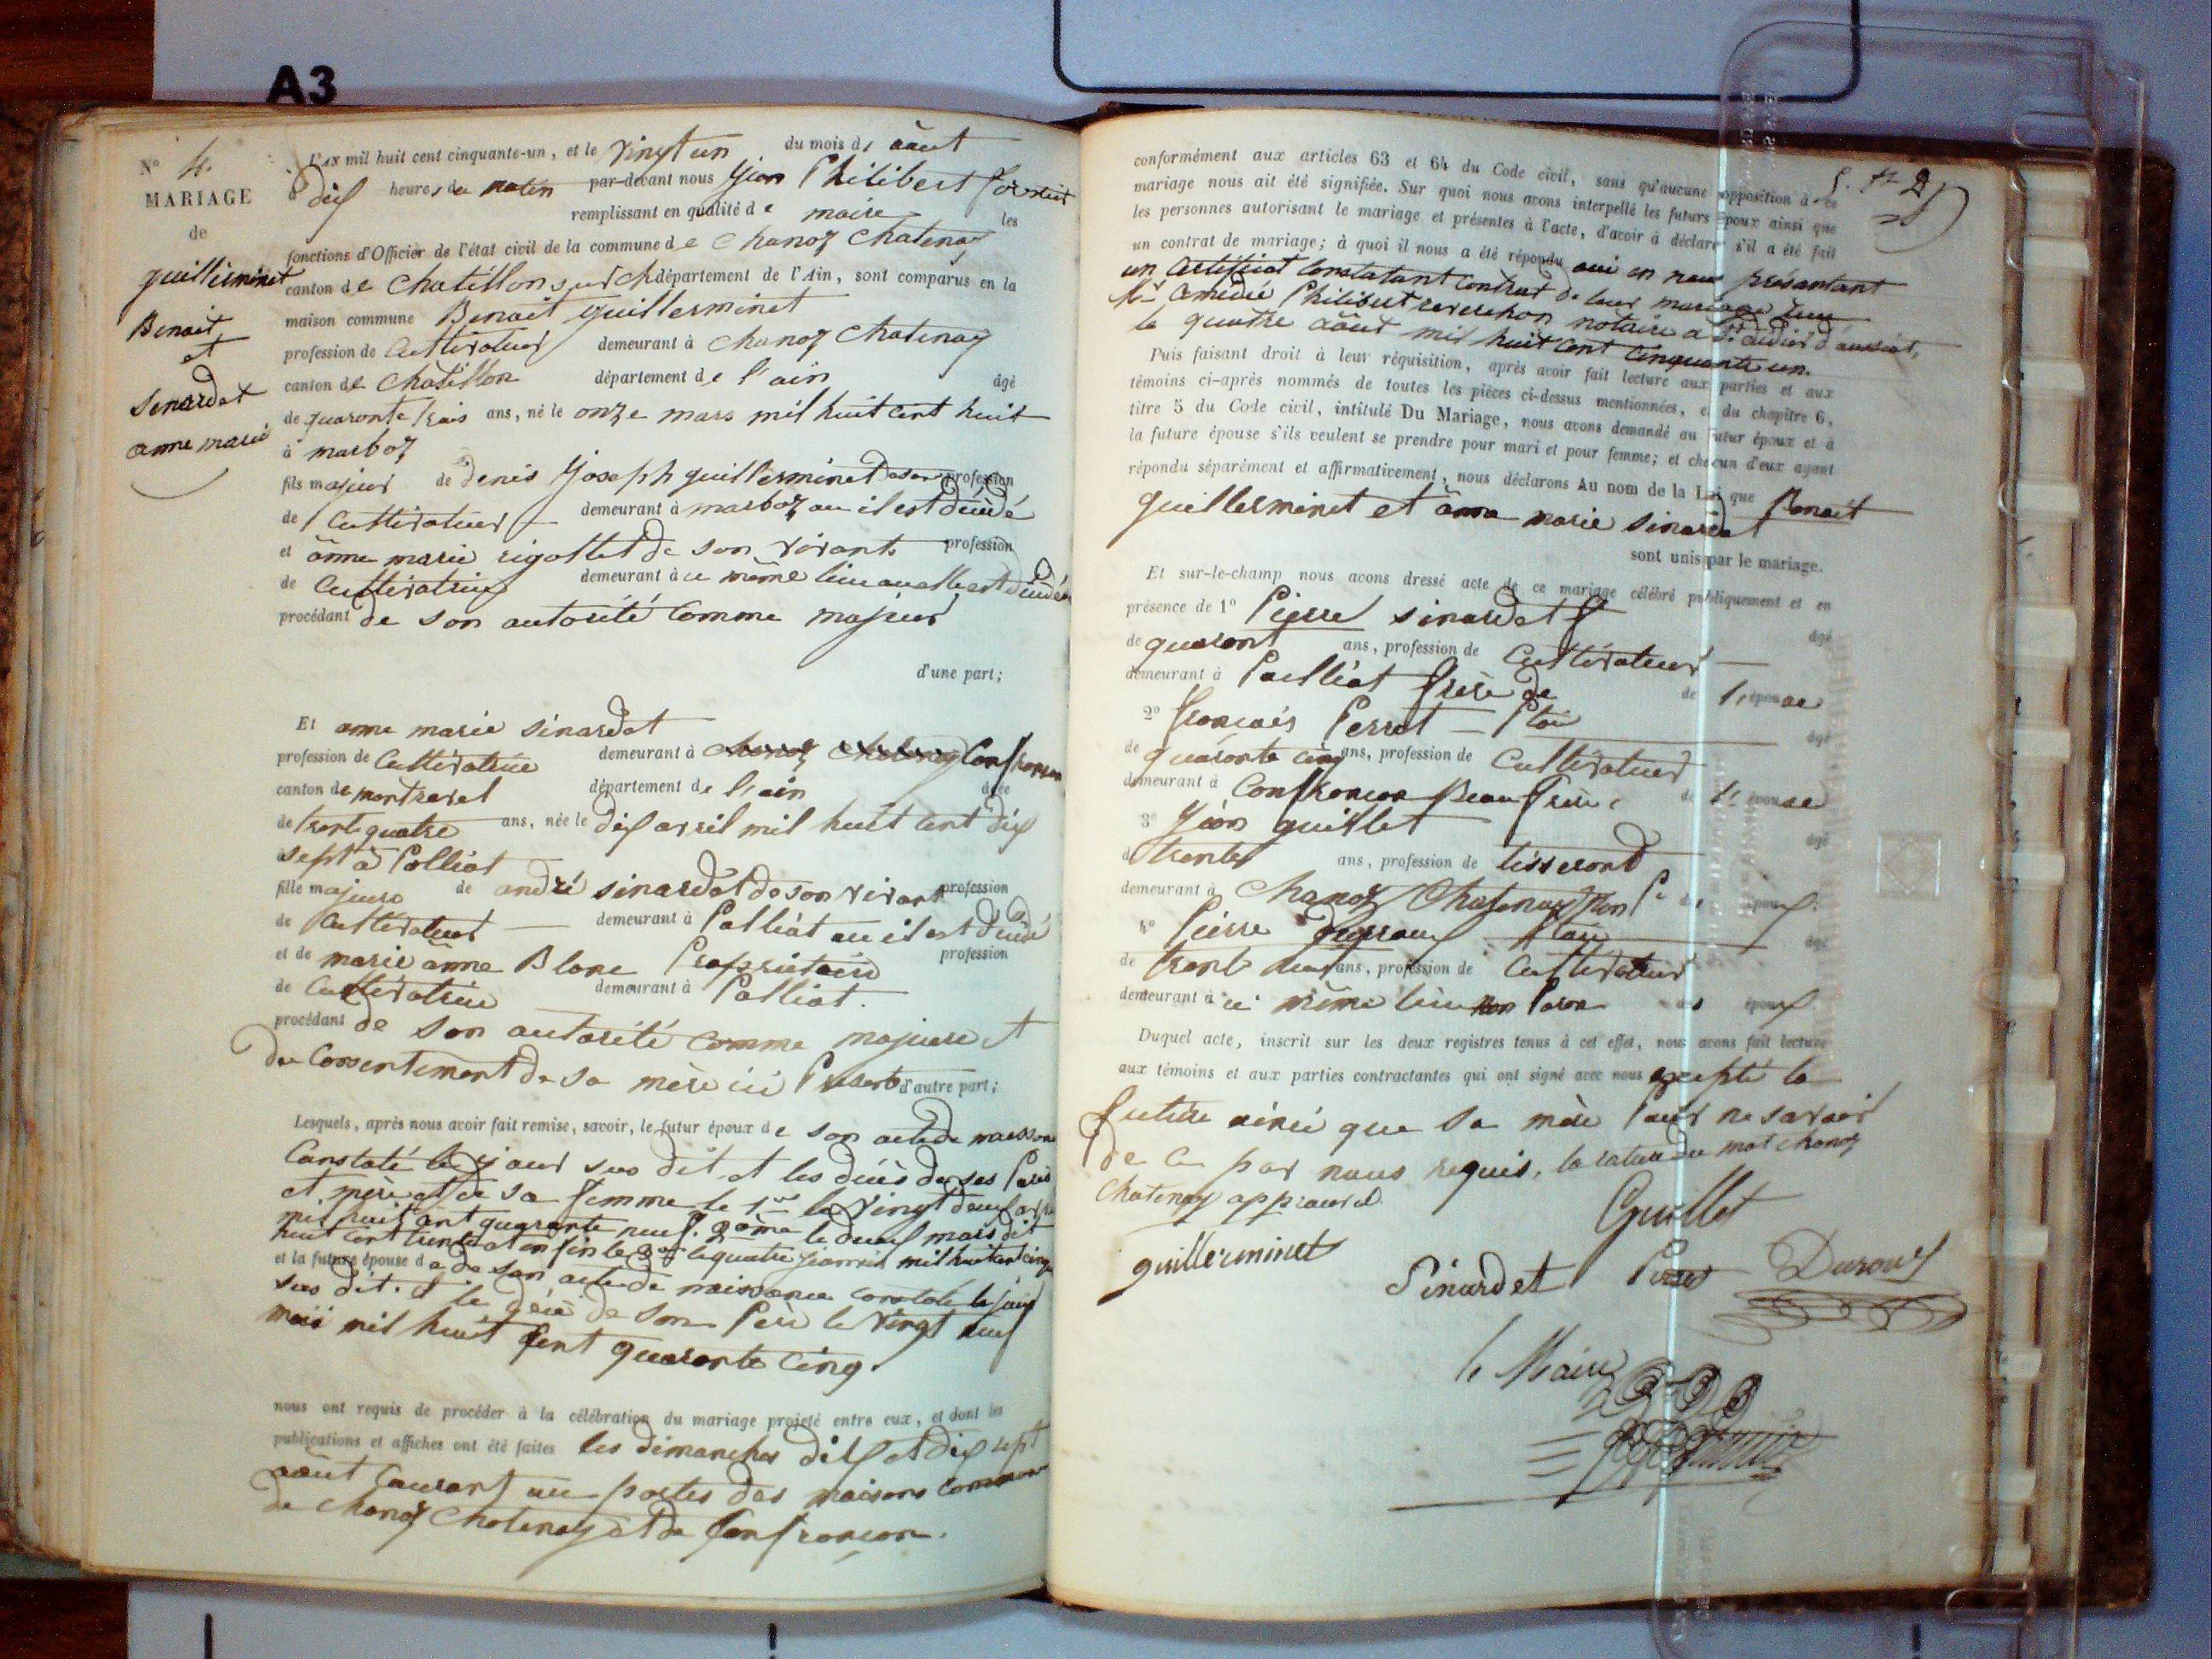 A3
N° 4.
MARIAGE
de
guillerminet
Benoit
et
Sinardet
anne marie
L'AN mil huit cent cinquante-un, et le vingt un du mois d'août
à dix heures du matin par-devant nous Jean Philibert
remplissant en qualité de maire les
fonctions d'Officier de l'état civil de la commune de Chanoz Chatenay
canton de Chatillon sur Ch département de l'Ain, sont comparus en la
maison commune Benoit guillerminet
profession de Cultivateur demeurant à Chanoz Chatenay
canton de Chatillon département de l'ain âgé
de quaronte trois ans, né le onze mars mil huit cent huit
à marboz
fils majeur de denis Joseph guillerminet de son profession
de Cultivateur demeurant à marboz ou il est décédé
et anne marie rigottet de son vivant profession
de Cultivatrice demeurant à ce même lieu ou elle est décédée
procédant de son autorité comme majeur
d'une part;
Et anne marie Sinardet
profession de Cultivatrice demeurant à Chanoz Chatenay Confrancon
canton de montrevel département de l'ain âgée
de trente quatre ans, née le dix avril mil huit cent dix
sept à Polliat
fille majeure de andré sinardet de son vivant profession
de Cultivateur demeurant à Polliat ou il est décédé
et de marie anne Blanc Propriétaire profession
de Cultivatrice demeurant à Polliat.
procédant de son autorité comme majeure et
du Consentement de sa mère ici Présente d'autre part;
Lesquels, après nous avoir fait remise, savoir, le futur époux de son acte de naissance
Constaté le jour sus dit, et les décès de ses Père
et mère et de sa femme le 1er le vingt deux
mil huit cent quarante neuf. 2ème le deux mars dit
huit cent trente et enfin le 3me le quatre janvier mil huit cent cinq
et la future épouse de de son acte de naissance constaté le jour
sus dit. et le décé de son Père le vingt neuf
mois mil huit cent quaronte cinq.
nous ont requis de procéder à la célébration du mariage projeté entre eux, et dont les
publications et affiches ont été faites les dimanches dix et dix sept
août courant au portes des maisons communes
de Chanoz Chatenay et de Confrancon.
conformément aux articles 63 et 64 du Code civil, sans qu'aucune opposition à ce
mariage nous ait été signifiée. Sur quoi nous avons interpellé les futurs époux ainsi que
les personnes autorisant le mariage et présentes à l'acte, d'avoir à déclarer s'il a été fait
un contrat de mariage; à quoi il nous a été répondu oui en nous présantant
un Certificat Constatant Contrat de leur mariage
Mr amédée Philibert reverchon notaire a St didier d'aussiat,
le quatre août mil huit cent cinquante un.
Puis faisant droit à leur réquisition, après avoir fait lecture aux parties et aux
témoins ci-après nommés de toutes les pièces ci-dessus mentionnées, et du chapitre 6,
titre 5 du Code civil, intitulé Du Mariage, nous avons demandé au futur époux et à
la future épouse s'ils veulent se prendre pour mari et pour femme; et chacun d'eux ayant
répondu séparément et affirmativement, nous déclarons Au nom de la Loi que Benoit
guillerminet et anne marie sinardet
sont unis par le mariage.
Et sur-le-champ nous avons dressé acte de ce mariage célébré publiquement et en
présence de 1° Pierre sinardet âgé
de quaront ans, profession de Cultivateur
demeurant à Polliat frère de de l'épouse
2° francois Perret âgé
de quaronte cinq ans, profession de Cultivateur
demeurant à Confrancon Beau frère de l'épouse
3° Jean guillet âgé
de trente ans, profession de tisserand
demeurant à Chanoz Chatenay non Pt des époux.
4° Pierre âgé
de trente deux ans, profession de Cultivateur
demeurant à ce même lieu non Parent des époux
Duquel acte, inscrit sur les deux registres tenus à cet effet, nous avons fait lecture
aux témoins et aux parties contractantes qui ont signé avec nous excepté la
future ainsi que sa mère Pour ne savoir
de ce par nous requis. la rature du mot chanoz
Chatenay approuvé
Guillet
guillerminet
Sinardet Perret Duroux
le Maire